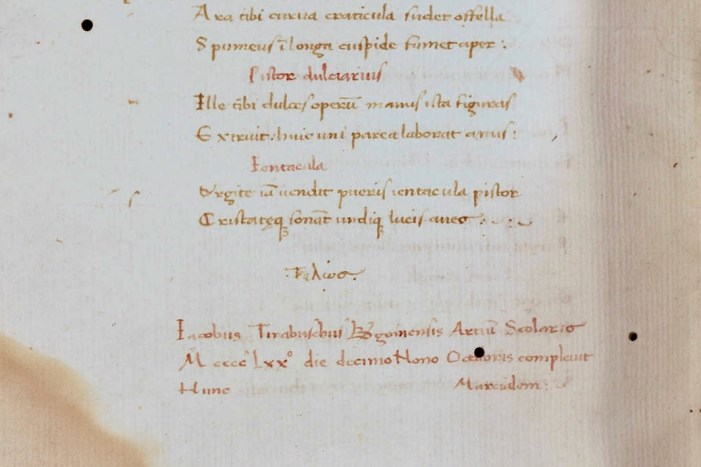 Ara tibi curua craticula sudet offella
Spumeus ĩ longa cuspide fumet aper:
Pistor dulciarius
Ille tibi dulces operũ manus ista figuras
Extruit: huic uni parca laborat
Ientacula
Vrgite iã uendit pueris ientacula pistor
Cristateqꝫ sonãt undiqꝫ lucis aues:
.Τελως.
Iacobus Artiũ Scolaris
M cccc Lxxº die decimo Nono Octobris compleuit
Hunc Marcialem: